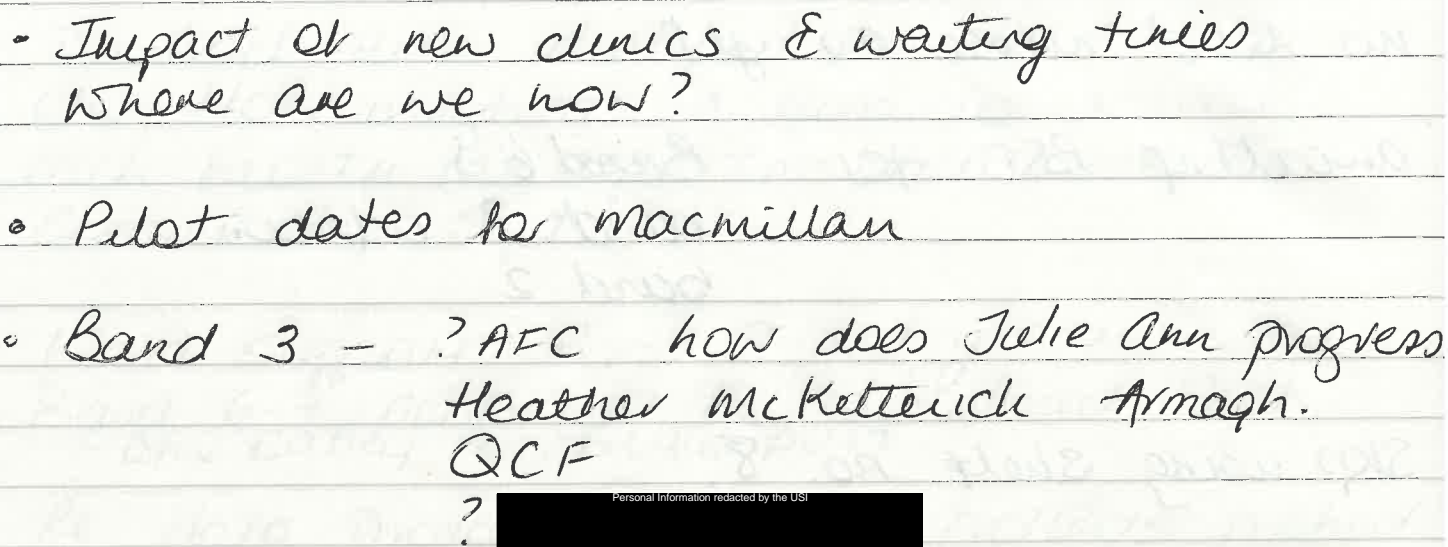 • Impact of new clinics & waiting times
where are we now?
• Pilot dates for macmillan
• Band 3 - ? AFC how does Julie Ann progress
Heather McKetterick Armagh.
QCF
?
Personal Information redacted by the USI